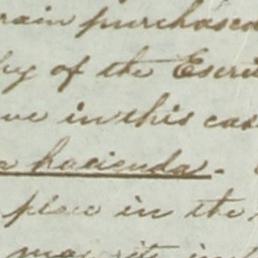 rain purchased
by of the Escri
ve in this cas
a hacienda.
place in the